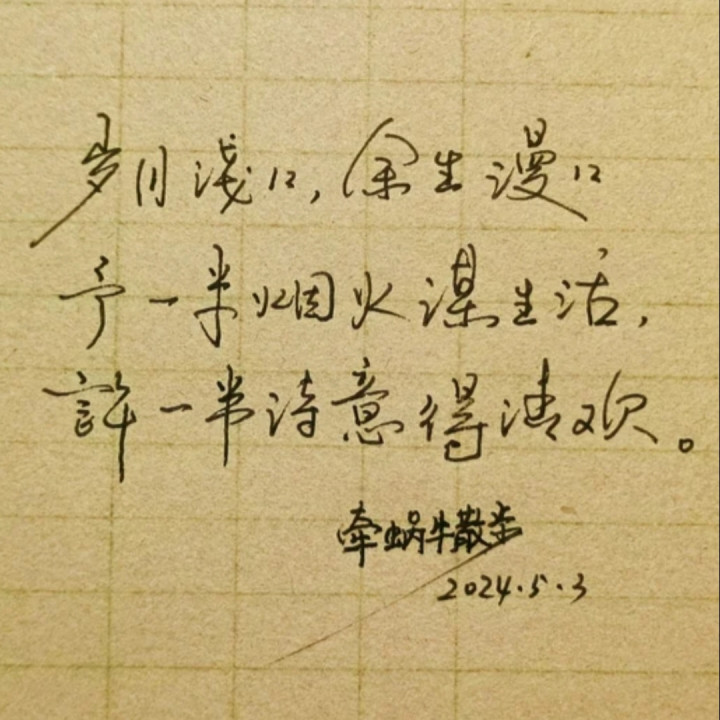 岁月浅浅，余生漫漫
予一半烟火谋生活，
許一半诗意得清欢。
牵蜗牛散步
2024.5.3